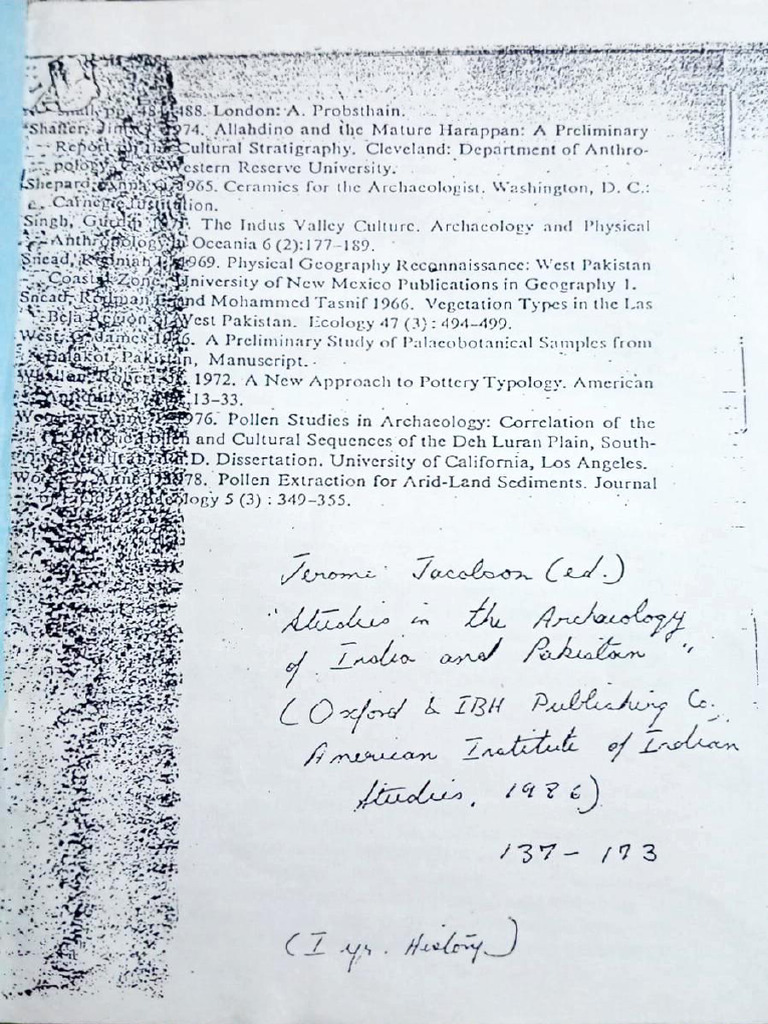 488. London: A. Probsthain.
Shaffer, Jim G. 1974. Allahdino and the Mature Harappan: A Preliminary
Report on the Cultural Stratigraphy. Cleveland: Department of Anthro-
pology, Case Western Reserve University.
Shepard, Anna O. 1965. Ceramics for the Archaeologist. Washington, D. C.:
Carnegie Institution.
Singh, The Indus Valley Culture. Archaeology and Physical
Anthropology in Oceania 6 (2):177–189.
Snead, 1969. Physical Geography Reconnaissance: West Pakistan
Coastal Zone. University of New Mexico Publications in Geography 1.
Snead, and Mohammed Tasnif 1966. Vegetation Types in the Las
Bela Region of West Pakistan. Ecology 47 (3): 494–499.
West, G. James A Preliminary Study of Palaeobotanical Samples from
Balakot, Pakistan, Manuscript.
Robert 1972. A New Approach to Pottery Typology. American
Antiquity 13–33.
1976. Pollen Studies in Archaeology: Correlation of the
and Cultural Sequences of the Deh Luran Plain, South-
D. Dissertation. University of California, Los Angeles.
1978. Pollen Extraction for Arid-Land Sediments. Journal
5 (3) : 349–355.
Jerome Jacobson (ed.)
"Studies in the Archaeology
of India and Pakistan"
(Oxford & IBH Publishing Co.
American Institute of Indian
Studies, 1986)
137 – 173
(I yr. History)